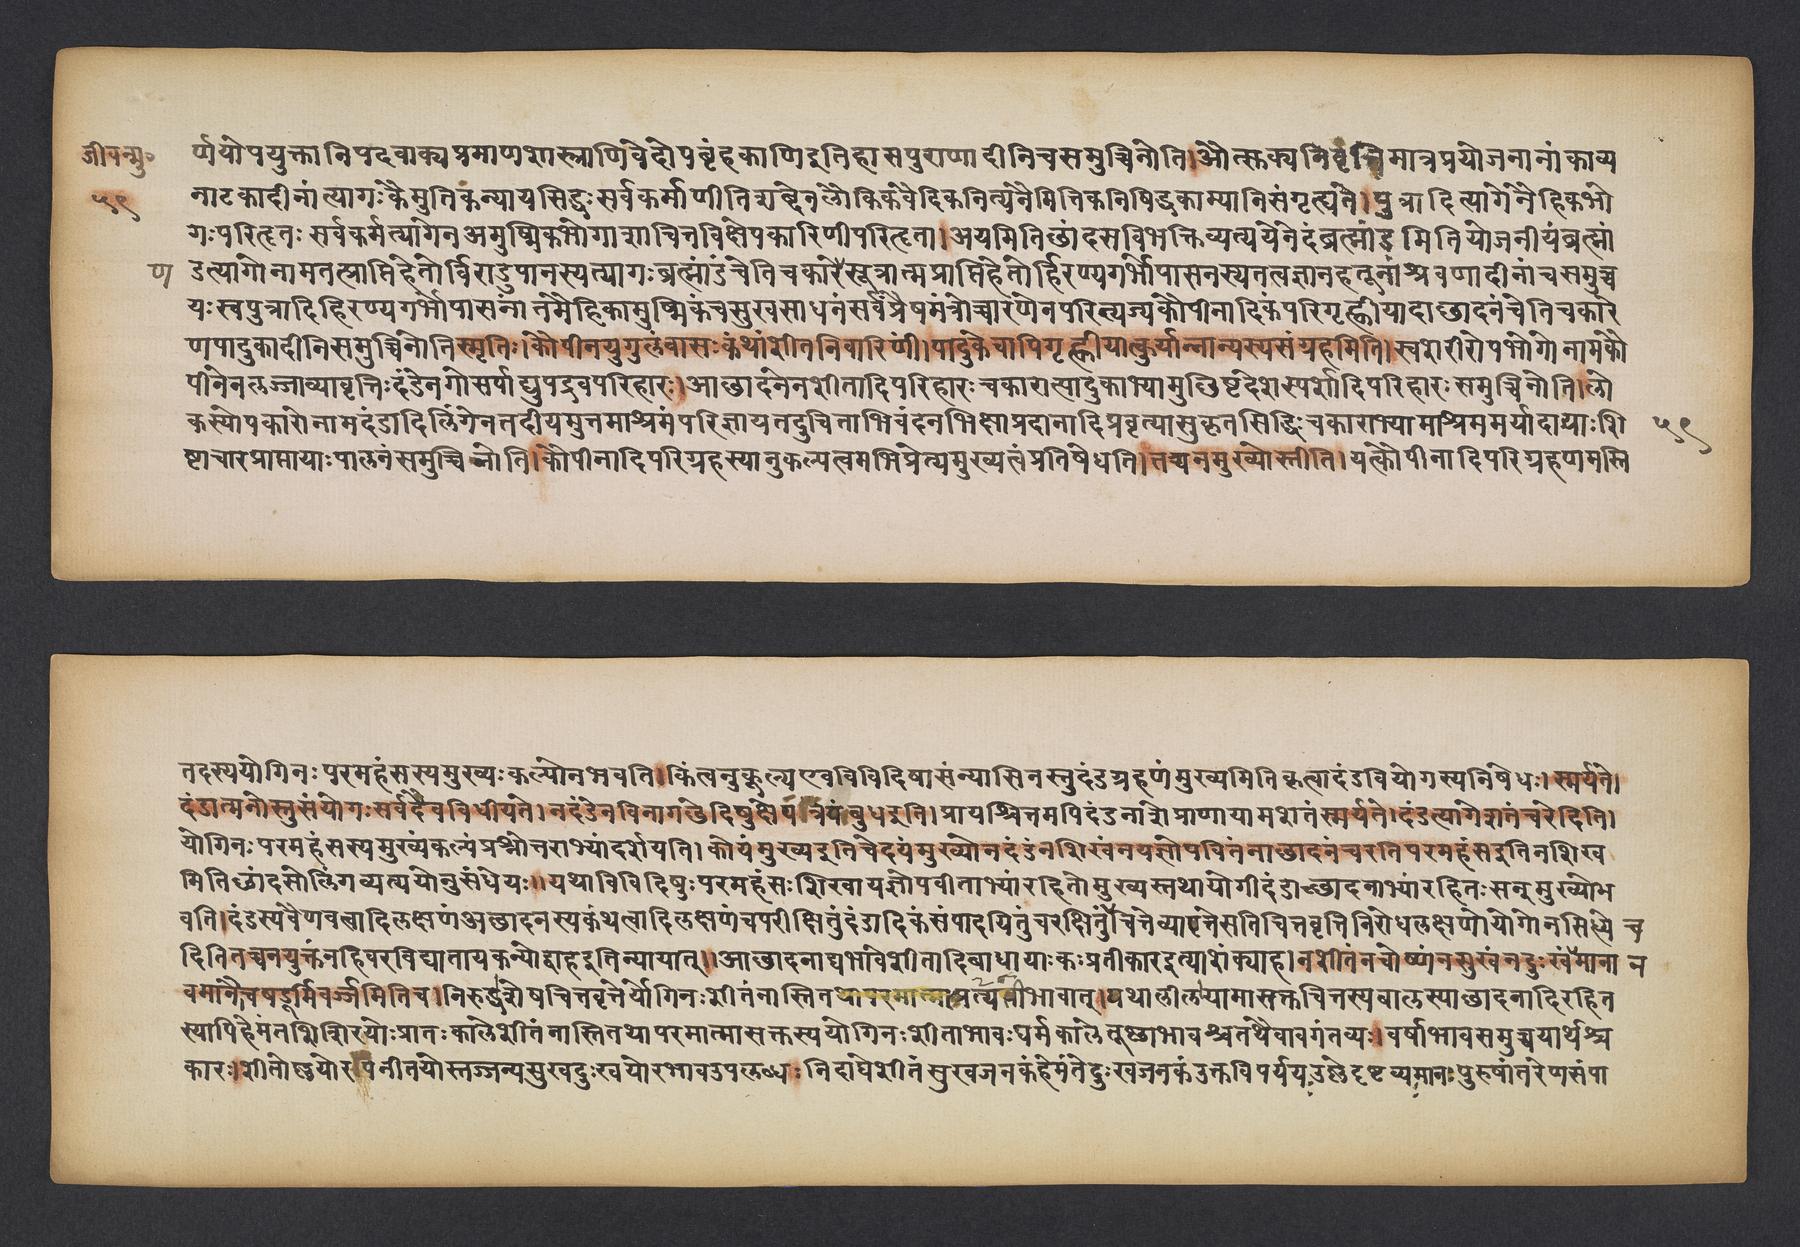 जीवन्मु॰
५९
र्णयोपयुक्तानिपदवाक्यप्रमाणशास्त्राणिवेदोपबृंहकाणिइतिहासपुराणादीनिचसमुच्चिनोति।औत्सुक्यनिवृत्तिमात्रप्रयोजनानांकाव्य
नाटकादीनांत्यागःकैमुतिकन्यायसिद्धःसर्वकर्माणीतिशब्देनलौकिकवैदिकनित्यनैमित्तिकनिषिद्धकाम्यानिसंगृह्यंते।पुत्रादित्यागेनैहिकभो
गःपरिहृतःसर्वकर्मत्यागेनअमुष्मिकभोगाशाचित्तविक्षेपकारिणीपरिहृता।अयमितिछांदसविभक्तिव्यत्ययेनेदंब्रह्मांडमितियोजनीयंब्रह्मां
डत्यागोनामतत्प्राप्तिहेतोर्विराडुपानस्यत्यागःब्रह्मांडंचेतिचकारेसूत्रात्मप्राप्तिहेतोर्हिरण्यगर्भोपासनस्यतत्वज्ञानहेतूनांश्रवणादीनांचसमुच्च
ण
यःस्वपुत्रादिहिरण्यगर्भोपासनांतमैहिकामुष्मिकंचसुखसाधनंसर्वंप्रैषमंत्रोच्चारणेनपरित्यज्यकौपीनादिकंपरिगृह्णीयादाछादनंचेतिचकारे
णपादुकादीनिसमुच्चिनोतिस्मृतिः।कौपीनयुगुलंवासःकंथांशीतनिवारिणीं।पादुकेचापिगृह्णीयात्कुर्यान्नान्यस्यसंग्रहमिति।स्वशरीरोपभोगोनामकौ
पीनेनलज्जाव्यावृत्तिःदंडेनगोसर्पाद्युपद्रवपरिहारः।आछादनेनशीतादिपरिहारःचकारात्पादुकाभ्यामुछिष्टदेशस्पर्शादिपरिहारःसमुच्चिनोति।लो
कस्योपकारोनामदंडादिलिंगेनतदीयमुत्तमाश्रमंपरिज्ञायतदुचिताभिवंदनभिक्षाप्रदानादिप्रवृत्यासुकृतसिद्धिःचकाराभ्यामाश्रममर्यादायाःशि
५९
ष्टाचारप्राप्तायाःपालनंसमुच्चिनोति।कौपीनादिपरिग्रहस्यानुकल्पत्वमभिप्रेत्यमुख्यत्वंप्रतिषेधति।तच्चनमुख्योस्तीति।यत्कौपीनादिपरिग्रहणमस्ति
तदस्ययोगिनःपरमहंसस्यमुख्यःकल्पोनभवति।किंत्वनुकूल्पएवविविदिषासंन्यासिनस्तुदंडग्रहणंमुख्यमितिकृत्वादंडवियोगस्यनिषेधः।स्मर्यते।
दंडात्मनोस्तुसंयोगःसर्वदैवविधीयते।नदंडेनविनागछेदिषुक्षेपत्रयंबुधइति।प्रायश्चित्तमपिदंडनाशेप्राणायामशतंस्मर्यते।दंडत्यागेशतंचरेदिति।
योगिनःपरमहंसस्यमुख्यंकल्पंप्रश्नोत्तराभ्यांदर्शयति।कोयंमुख्यइतिचेदयंमुख्योनदंडंनशिखंनयज्ञोपवितंनाछादनंचरतिपरमहंसइतिनशिख
मितिछांदसोलिंगव्यत्ययोनुसंधेयः।।यथाविविदिषुःपरमहंसःशिखायज्ञोपवीताभ्यांरहितोमुख्यस्तथायोगीदंडाच्छादनाभ्यांरहितःसन्मुख्योभ
वति।दंडस्यवैणवत्वादिलक्षणंअछादनस्यकंथत्वादिलक्षणंचपरीक्षितुंदंडादिकंसंपादयितुंचरक्षितुंचित्तेव्यापृत्तेसतिचित्तवृत्तिनिरोधलक्षणोयोगोनसिध्ये
च
दितितच्चनयुक्तंनहिवरविघातायकन्योद्वाहइतिन्यायात्।।आछादनाद्यभावेशीतादिबाधायाःकःप्रतीकारइत्याशंक्याह।नशीतंनचोष्णंनसुखंनदुःखंमाना
न
वमानेचषडूर्मिवर्ज्जमितिच।निरुद्धशेषचित्तवृत्तेर्योगिनःशीतंनास्तितथापरमात्माप्रत्यतीभावात्।यथालीलायामासक्तचित्तस्यबालस्याछादनादिरहित
स्यापिहेमंतशिशिरयोःप्रातःकालेशीतंनास्तितथापरमात्मासक्तस्ययोगिनःशीताभावःघर्मकालेतूष्णाभावश्चतथैवावगंतव्यः।वर्षाभावसमुच्चयार्थश्च
कारः।शीतोष्णयोरपिनीतयोस्तज्जन्यसुखदुःखयोरभावउपलब्धःनिदाघेशीतंसुखजनकंहेमंतेदुःखजनकंउक्तविपर्ययउष्णेदृष्टव्यमानःपुरुषांतरेणसंपा